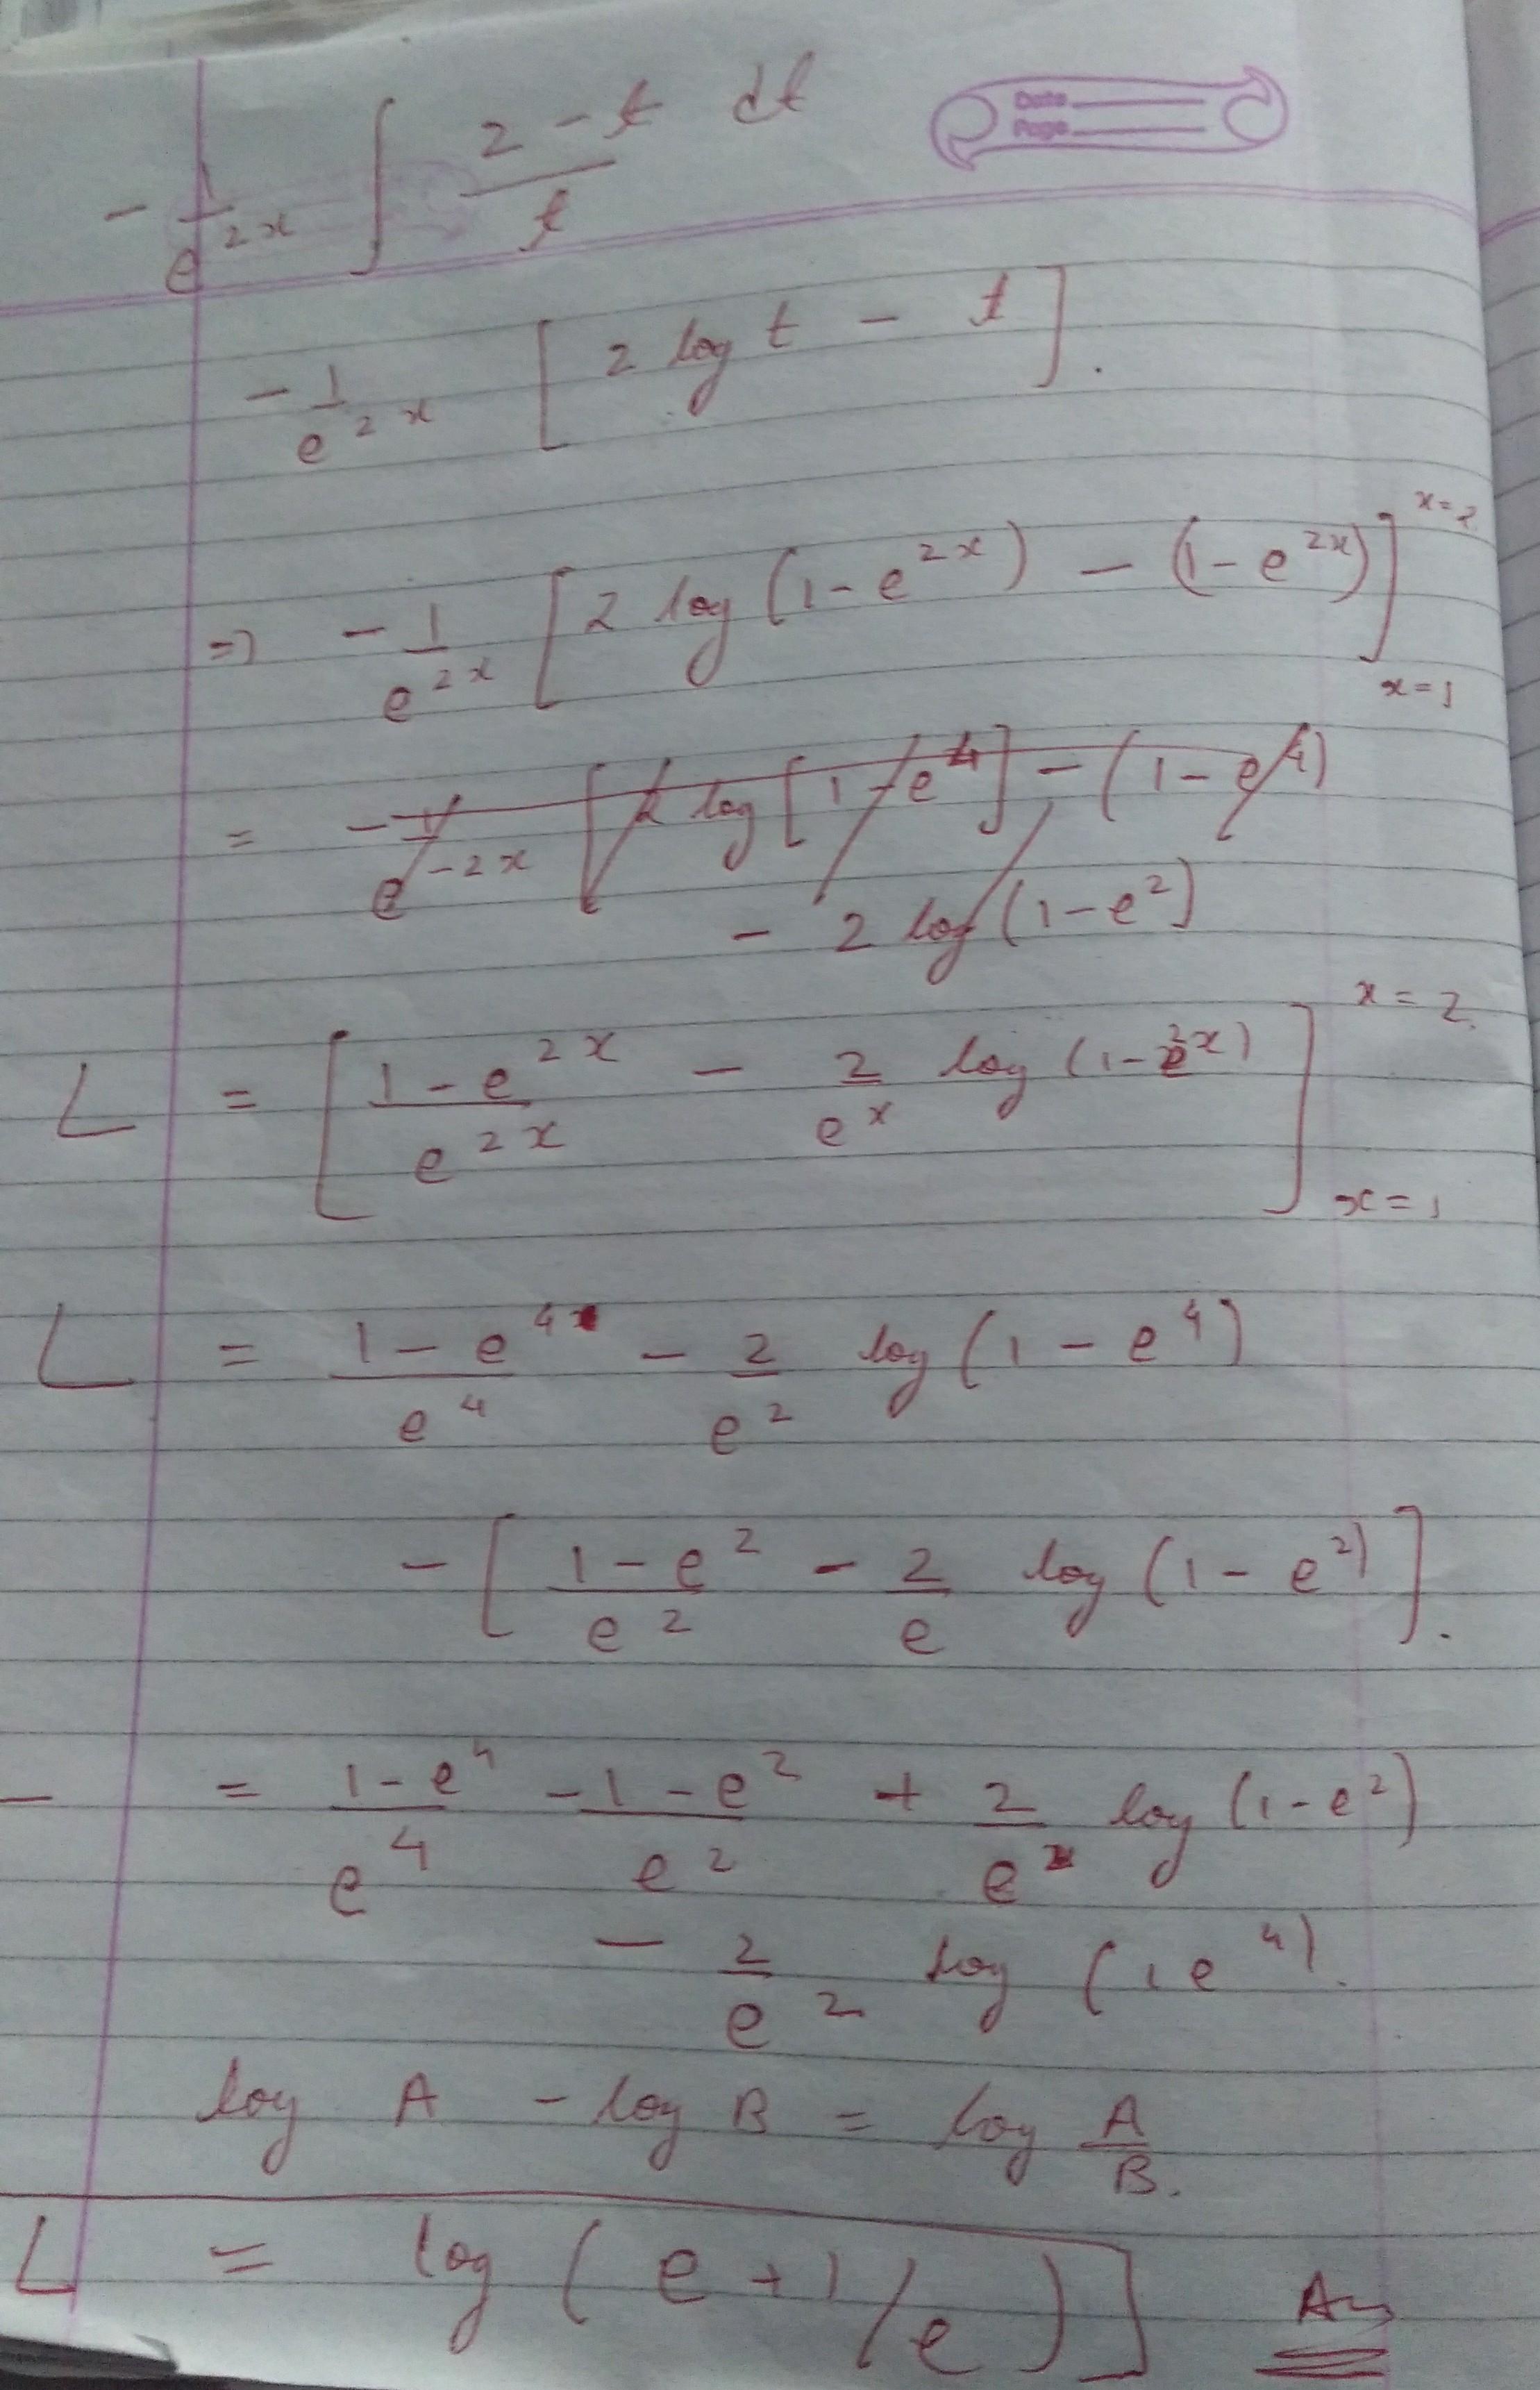 Date
Page
- 1/e^2x ∫ 2 - t/t dt
- 1/e^2x [2 log t - t].
=> - 1/e^2x [2 log (1 - e^2x) - (1 - e^2x)] x=2 x=1
= - 1/e^-2x [2 log [1 - e^4] - (1 - e^4)
- 2 log (1 - e^2)
L = [1 - e^2x/e^2x - 2/e^x log (1 - e^2x)] x = 2. x = 1
L = 1 - e^4/e^4 - 2/e^2 log (1 - e^4)
- [1 - e^2/e^2 - 2/e log (1 - e^2)].
= 1 - e^4/e^4 - 1 - e^2/e^2 + 2/e log (1 - e^2)
- 2/e^2 log (1 e^4).
log A - log B = log A/B.
L = log (e + 1/e)] Ans